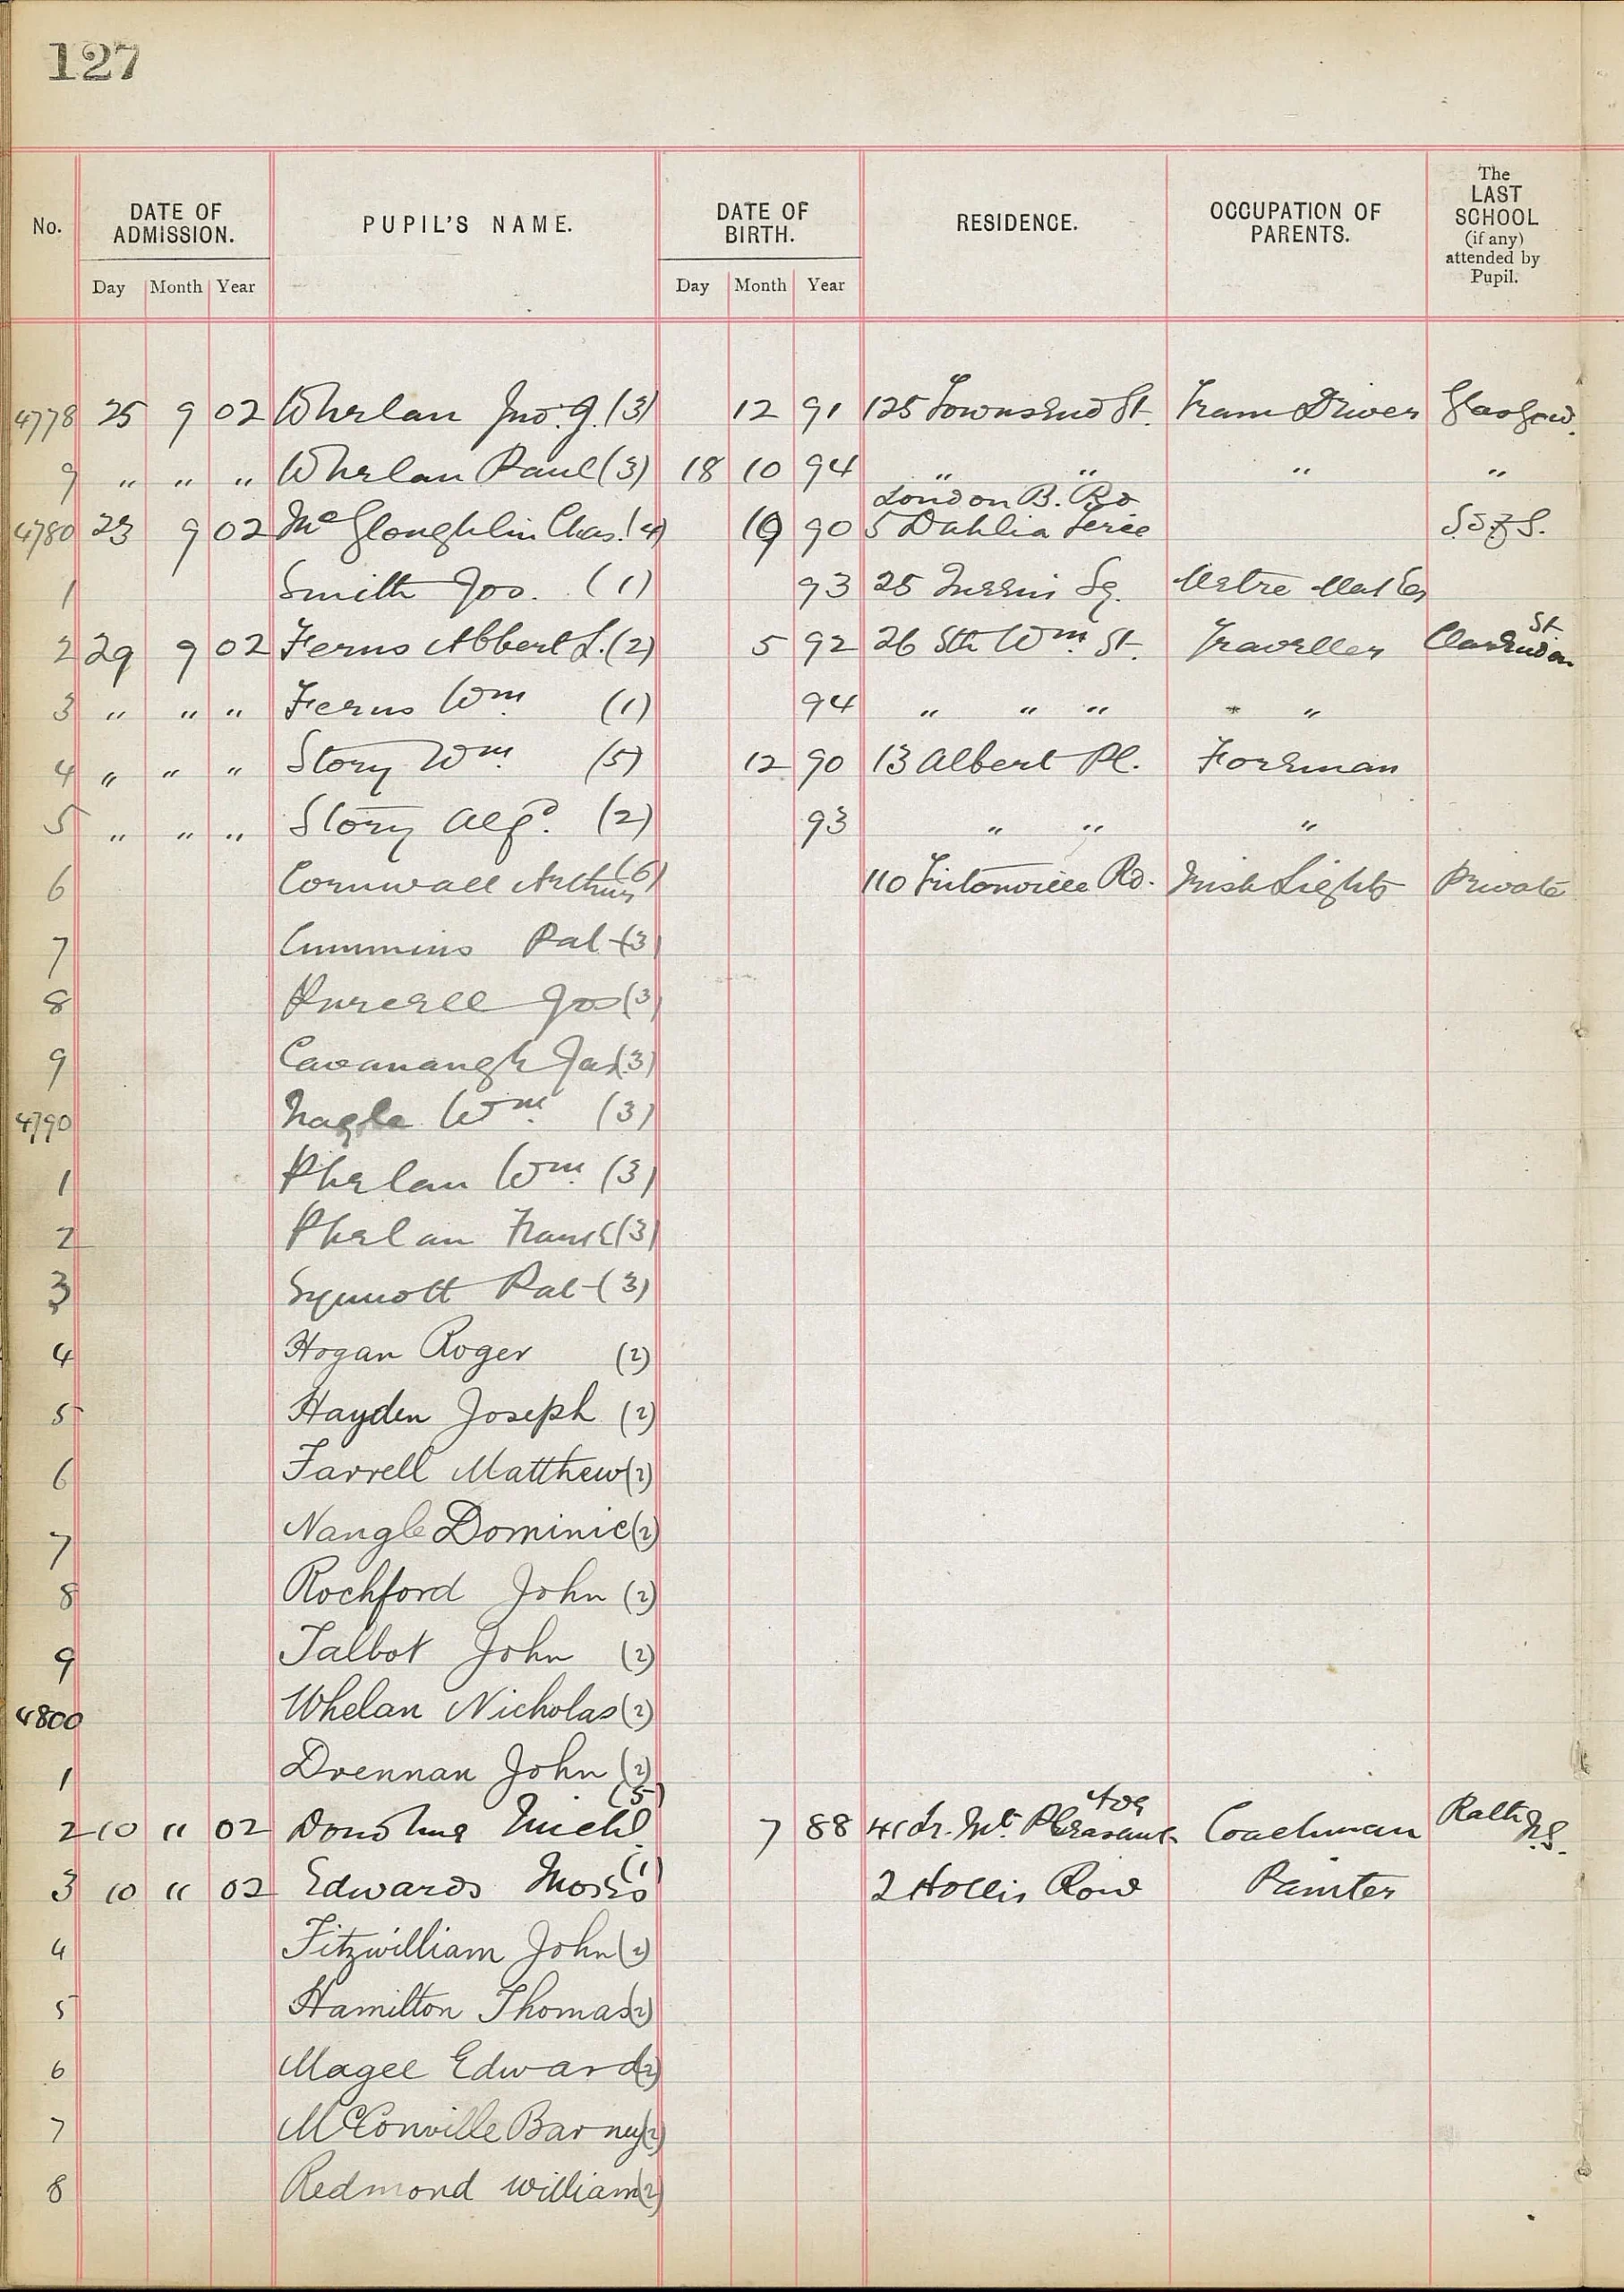 127
No. DATE OF ADMISSION. PUPIL'S NAME. DATE OF BIRTH. RESIDENCE. OCCUPATION OF PARENTS. The LAST SCHOOL (if any) attended by Pupil.
Day Month Year Day Month Year
4778 25 9 02 Whelan Jno. J. (3) 12 91 125 Townsend St. Tram Driver Glasgow.
9 " " " Whelan Paul (3) 18 10 94 " " " "
London B. Rd
4780 23 9 02 McGloughlin Chas. (4) 10 90 5 Dahlia Terce
1 Smith Jos. (1) 93 25 Sq.
2 29 9 02 Ferns Albert L. (2) 5 92 26 Sth Wm. St. Traveller Clarendon St
3 " " " Ferns Wm (1) 94 " " " " "
4 " " " Story Wm. (5) 12 90 13 Albert Pl. Foreman
5 " " " Story Alfd. (2) 93 " " "
6 Cornwall Arthur (6) 110 Tritonville Rd. Irish Lights Private
7 Cummins Pat (3)
8 Purcell Jos (3)
9 Cavanangh Jas (3)
4790 Nagle Wm. (3)
1 Phelan Wm. (3)
2 Phelan Frank (3)
3 Synnott Pat (3)
4 Hogan Roger (2)
5 Hayden Joseph (2)
6 Farrell Matthew (2)
7 Nangle Dominic (2)
8 Rochford John (2)
9 Talbot John (2)
4800 Whelan Nicholas (2)
1 Drennan John (2)
2 10 " 02 Donohue Michl. (5) 7 88 41 Mt. Pleasant Ave Coachman Rath N.S.
3 10 " 02 Edwards Moses (1) 2 Hollis Row Painter
4 Fitzwilliam John (2)
5 Hamilton Thomas (2)
6 Magee Edward (2)
7 McConville Barney (2)
8 Redmond William (2)